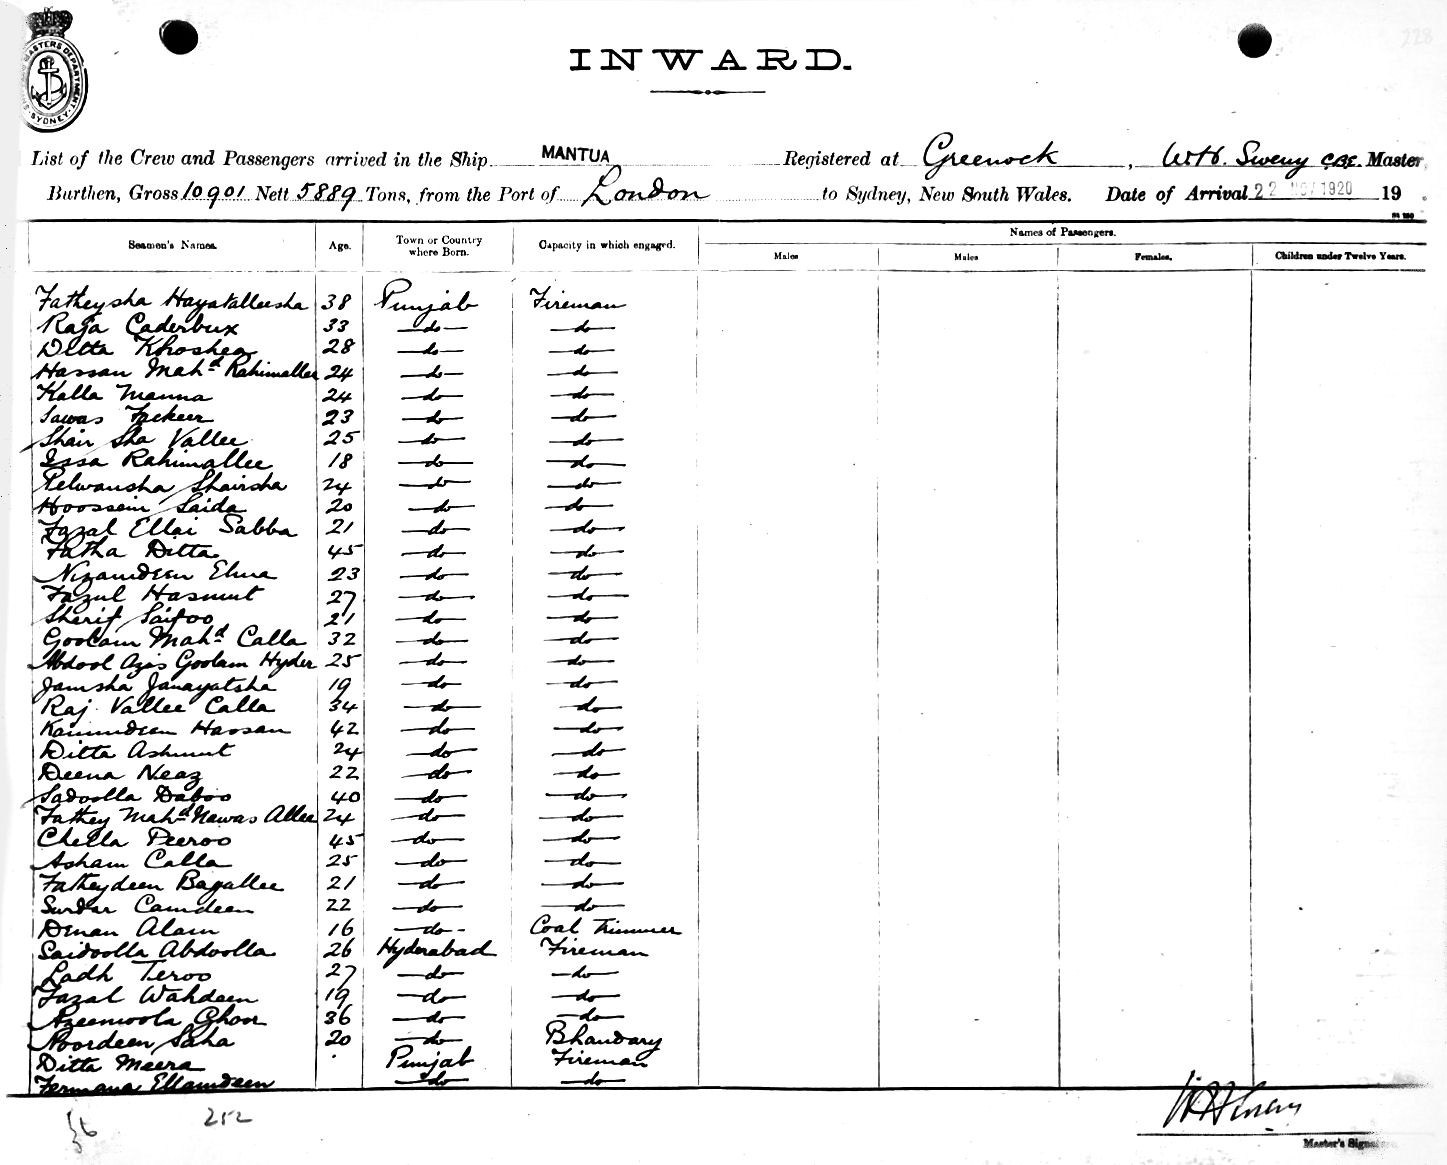 228
MASTERS DEPARTMENT
SYDNEY
INWARD.
List of the Crew and Passengers arrived in the Ship MANTUA Registered at Greenock, W.H. Sweny CBE. Master
Burthen, Gross 10901 Nett 5889 Tons, from the Port of London to Sydney, New South Wales. Date of Arrival 22 1920 19 .
Seamen's Names. Age. Town or Country where Born. Capacity in which engaged. Names of Passengers.
Males Males Females. Children under Twelve Years.
Fatheysha Hayatalleesha 38 Punjab Fireman
Raja Caderbux 33 -do- -do-
Ditta Khoshea 28 -do- -do-
Hassan Mahd Rahimallee 24 -do- -do-
Kalla Manna 24 -do- -do-
Sawas Fackeer 23 -do- -do-
Shair Sha Vallee 25 -do- -do-
Issa Rahimallee 18 -do- -do-
Pelwansha Shairsha 24 -do- -do-
Hoossein Saida 20 -do- -do-
Fazal Ellai Sabba 21 -do- -do-
Fatha Ditta 45 -do- -do-
Nizamdeen Elma 23 -do- -do-
Fazul Hasmut 27 -do- -do-
Sherif Saifoo 21 -do- -do-
Goolam Mahd Calla 32 -do- -do-
Abdool Azis Goolam Hyder 25 -do- -do-
Jamsha Janayatsha 19 -do- -do-
Raj Vallee Calla 34 -do- -do-
Kamundeen Hassan 42 -do- -do-
Ditta Ashmut 24 -do- -do-
Deena Neaz 22 -do- -do-
Sadoolla Daboo 40 -do- -do-
Fathey Mahd Nawas Allee 24 -do- -do-
Chella Peeroo 45 -do- -do-
Asham Calla 25 -do- -do-
Fatheydeen Bagallee 21 -do- -do-
Surdar Camdeen 22 -do- -do-
Deman Alam 16 -do- Coal Trimmer
Saidoolla Abdoolla 26 Hyderabad Fireman
Ladh Teroo 27 -do- -do-
Fazal Wahdeen 19 -do- -do-
Azeemoola Ghoor 36 -do- -do-
Noordeen Saha 20 -do- Bhandary
Ditta Meera Punjab Fireman
Fermana Ellamdeen -do- -do-
36 252
W H Sweny
Master's Signature